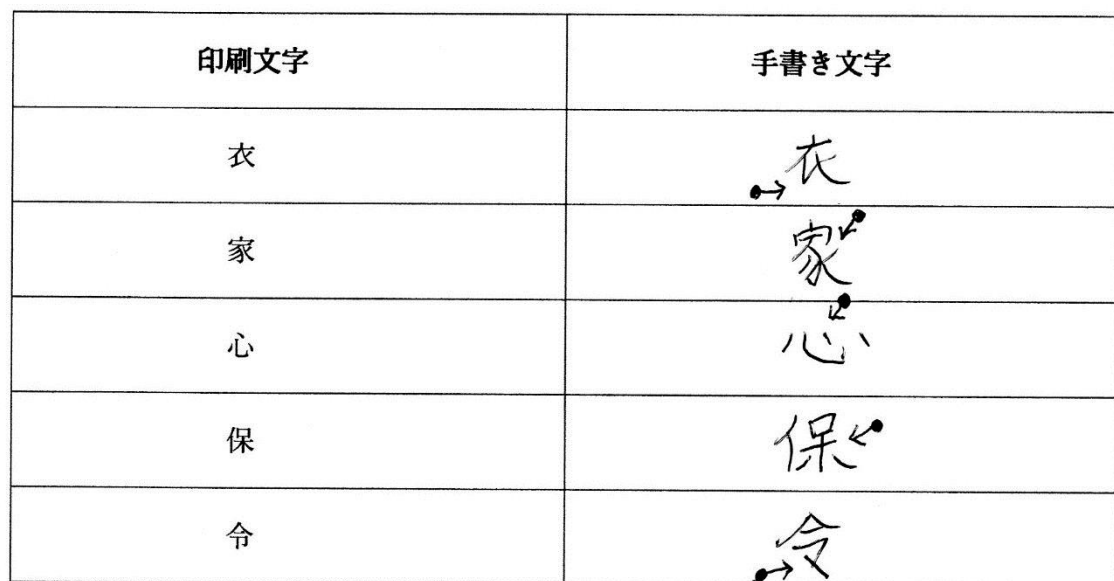 印刷文字 手書き文字
衣 衣
家 家
心 心
保 保
令 令